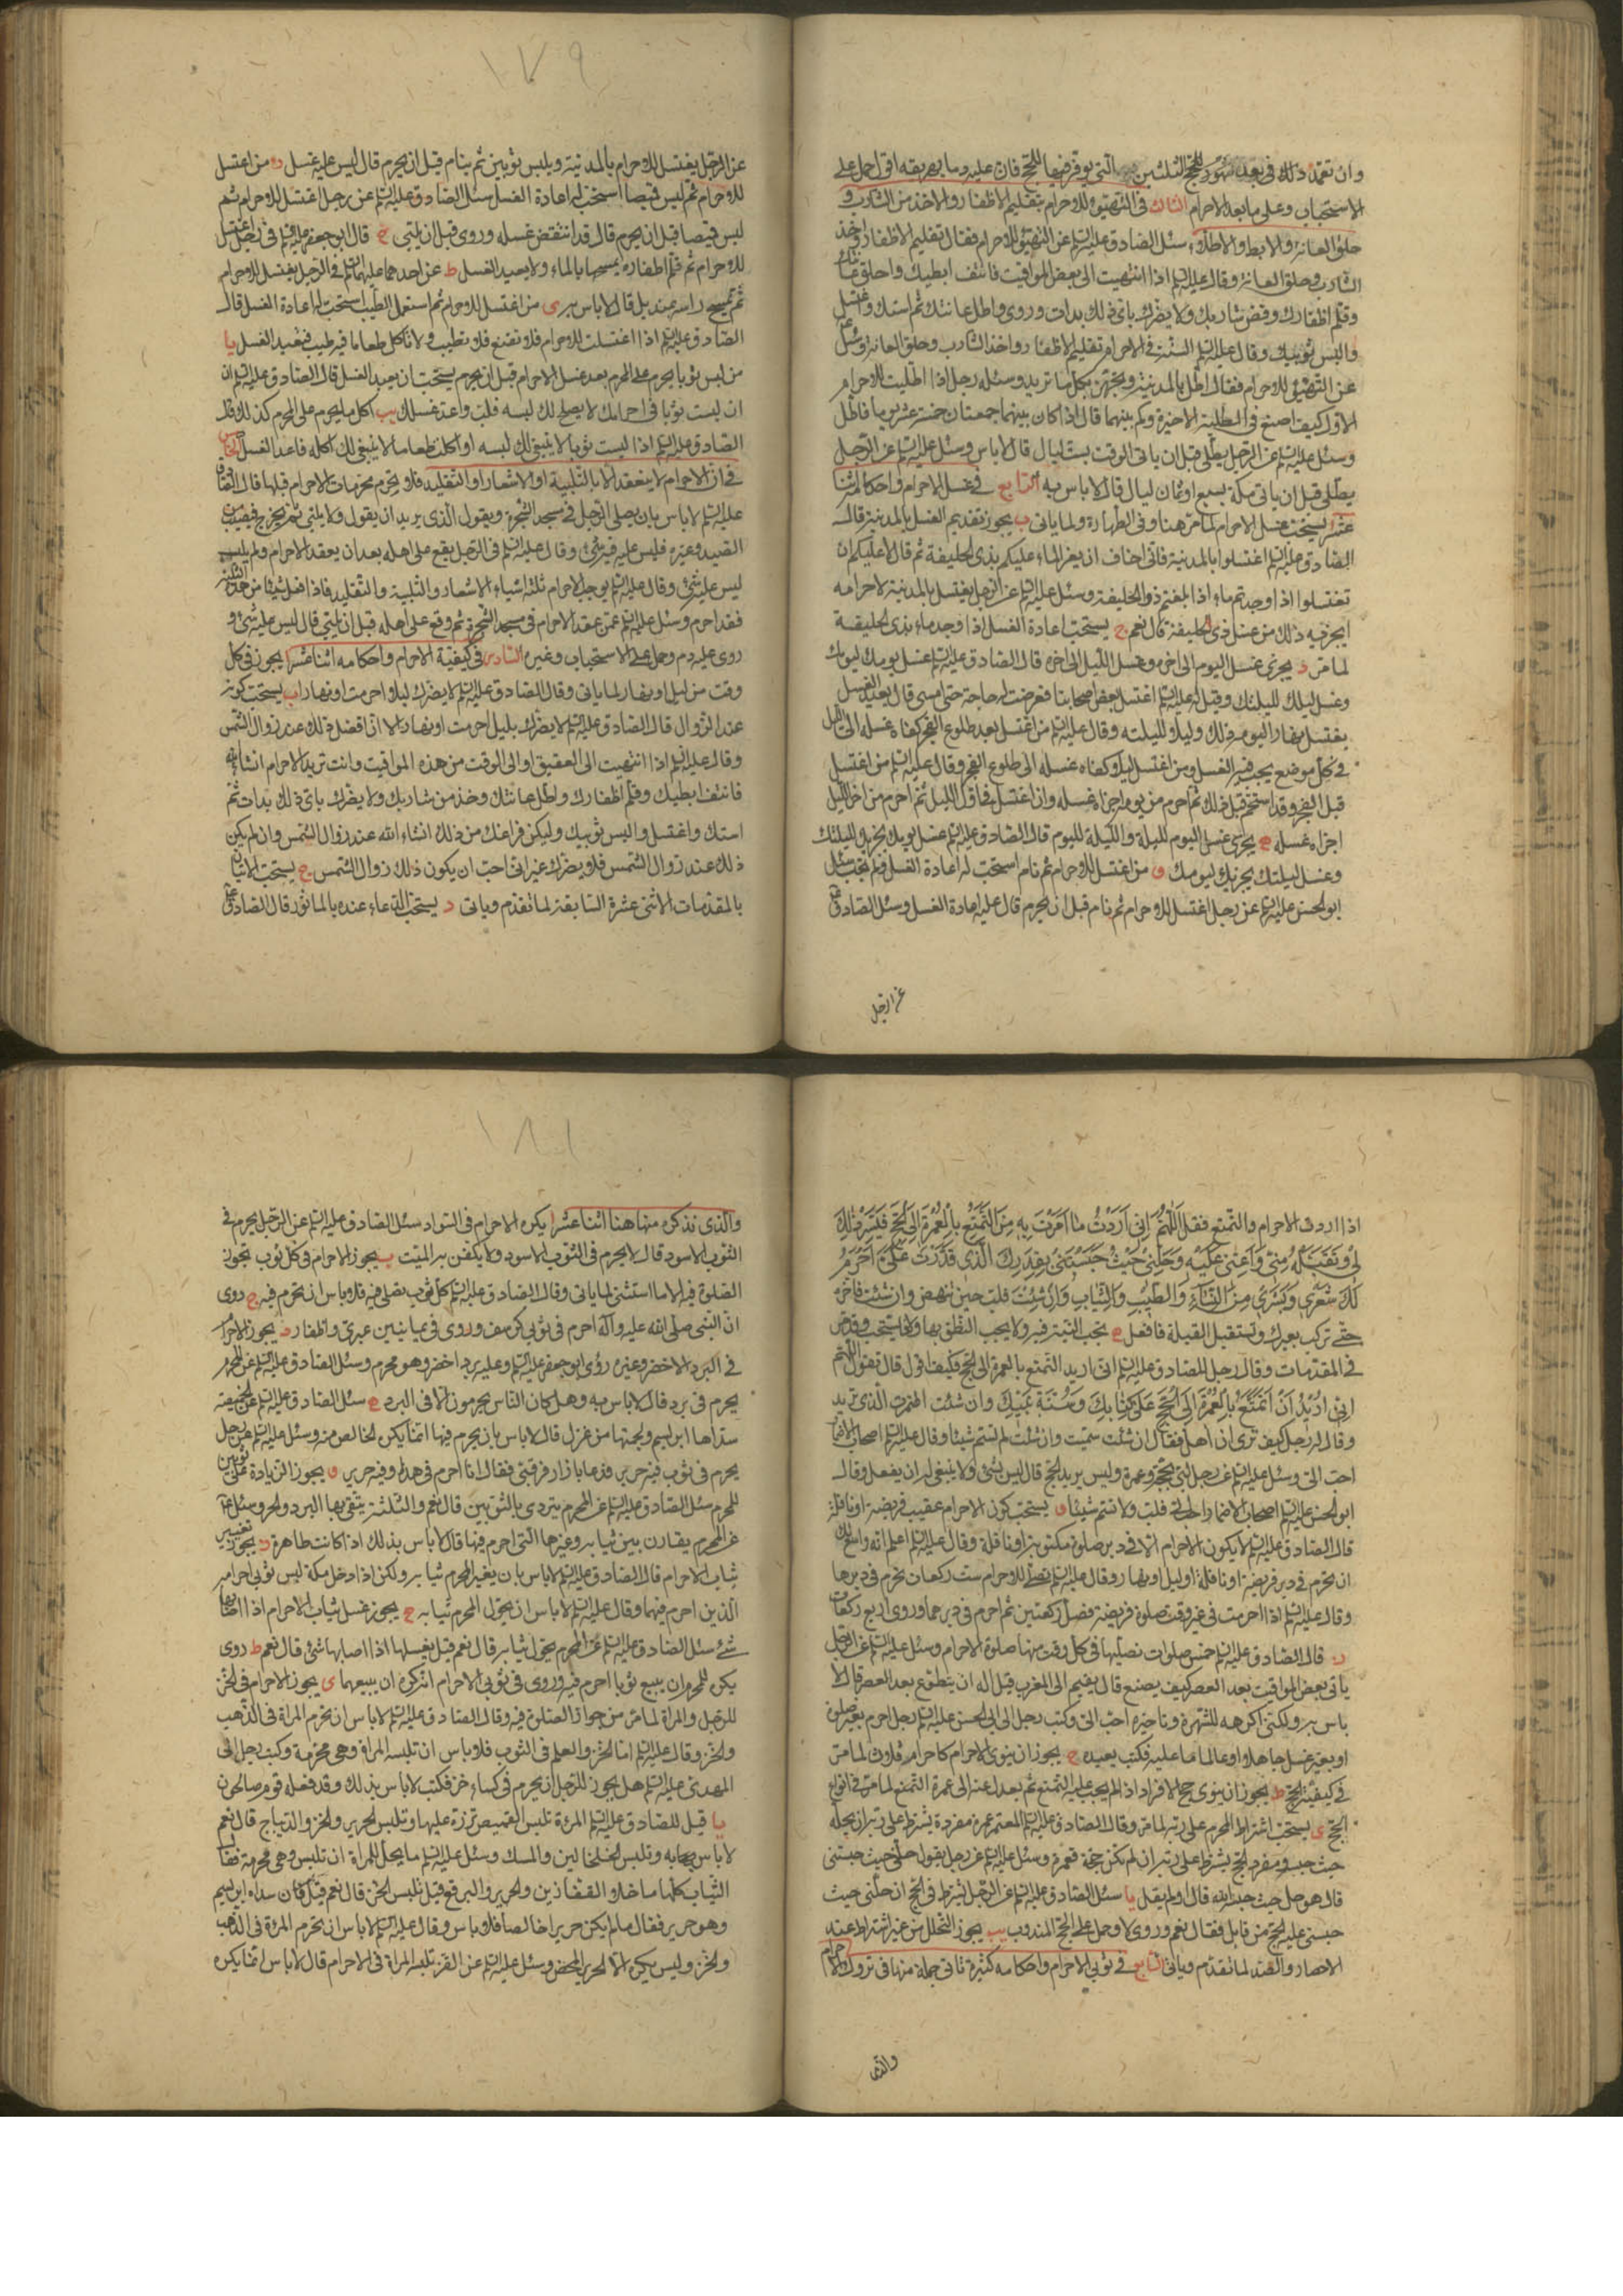 وان تعمد ذلك فى بعد شهور الحج الثلثين التى يوفر فيها للحج فان عليه دما يهريقه اقول حمل على
الاستحباب وعلى ما بعد الاحرام الثالث فى التهيؤ للاحرام بتقليم الاظفار والاخذ من الشارب و
حلق العانة والابط والاطلاء سئل الصادق عليه السلم عن التهيؤ للاحرام فقال تقليم الاظفار واخذ
الشارب وحلق العانة وقال عليه السلم اذا انتهيت الى بعض المواقيت فانتف ابطيك واحلق عانتك
وقلم اظفارك وقص شاربك ولا يضرك باى ذلك بدات وروى واطل عانتك ثم استك واغتسل
والبس ثوبيك وقال عليه السلم السنة فى الاحرام تقليم الاظفار واخذ الشارب وحلق العانة وسئل
عن التهيؤ للاحرام فقال اطل بالمدينة وتجهز بكل ما تريد وسئله رجل اذا اطليت للاحرام
الاول كيف اصنع فى الطلية الاخيرة وكم بينهما قال اذا كان بينهما جمعتان خمسة عشر يوما فاطل
وسئل عليه السلم عن الرجل يطلى قبل ان ياتى الوقت بست ليال قال لا باس وسئل عليه السلم عن الرجل
يطلى قبل ان ياتى مكة بسبع او ثمان ليال قال لا باس به الرابع فى غسل الاحرام واحكامه اثنا
عشر ا يستحب غسل الاحرام لما مر هنا وفى الطهارة ولما ياتى ب يجوز تقديم الغسل بالمدينة قال
الصادق عليه السلم اغتسلوا بالمدينة فانى اخاف ان يعز الماء عليكم بذى الحليفة ثم قال لا عليكم ان
تغتسلوا اذا وجدتم ماء اذا بلغتم ذو الحليفة وسئل عليه السلم عن الرجل يغتسل بالمدينة لاحرامه
ايجزيه ذلك من غسل ذى الحليفة قال نعم ج يستحب اعادة الغسل اذا وجد ماء بذى الحليفة
لما مر د يجزى غسل اليوم الى اخره وغسل الليل الى اخره قال الصادق عليه السلم غسل يومك ليومك
وغسل ليلك لليلتك وقيل له عليه السلم اغتسل بعض اصحابنا فعرضت له حاجة حتى امسى قال يعيد الغسل
يغتسل نهارا ليومه ذلك وليلا لليلته وقال عليه السلم من اغتسل بعد طلوع الفجر كفاه غسله الى الليل
فى كل موضع يجب فيه الغسل ومن اغتسل ليلا كفاه غسله الى طلوع الفجر وقال عليه السلم من اغتسل
قبل الفجر وقد استحم قبل ذلك ثم احرم من يومه اجزاه غسله وان اغتسل فى اول الليل ثم احرم من اخر الليل
اجزاه غسله ه يجزى غسل اليوم لليلة والليلة لليوم قال الصادق عليه السلم غسل يومك يجزيك لليلتك
وغسل ليلتك يجزيك ليومك و من اغتسل للاحرام ثم نام استحب له اعادة الغسل ولم تجب سئل
ابو الحسن عليه السلم عن رجل اغتسل للاحرام ثم نام قبل ان يحرم قال عليه اعادة الغسل وسئل الصادق عليه السلم
عن الرجل
١٧٩
عن الرجل يغتسل للاحرام بالمدينة ويلبس ثوبين ثم ينام قبل ان يحرم قال ليس عليه غسل ز من اغتسل
للاحرام ثم لبس قميصا استحب له اعادة الغسل سئل الصادق عليه السلم عن رجل اغتسل للاحرام ثم
لبس قميصا قبل ان يحرم قال قد انتقض غسله وروى قبل ان يلبى ح قال ابو جعفر عليه السلم فى رجل اغتسل
للاحرام ثم قلم اظفاره يمسحها بالماء ولا يعيد الغسل ط عن احدهما عليهما السلم فى الرجل يغتسل للاحرام
ثم يمسح راسه بمنديل قال لا باس به ى من اغتسل للاحرام ثم استعمل الطيب استحب له اعادة الغسل قال
الصادق عليه السلم اذا اغتسلت للاحرام فلا تقنع فلا تطيب ولا تاكل طعاما فيه طيب فتعيد الغسل يا
من لبس ثوبا يحرم على المحرم بعد غسل الاحرام قبل ان يحرم يستحب ان يعيد الغسل قال الصادق عليه السلم ان
ان لبست ثوبا فى احرامك لا يصلح لك لبسه فلب واعد غسلك يب اكل ما يحرم على المحرم كذلك قال
الصادق عليه السلم اذا لبست ثوبا لا ينبغى لك لبسه او اكلت طعاما لا ينبغى لك اكله فاعد الغسل الخامس
فى ان الاحرام لا ينعقد الا بالتلبية او الاشعار او التقليد فلا يحرم محرمات الاحرام قبلها قال الصادق
عليه السلم لا باس بان يصلى الرجل فى مسجد الشجرة ويقول الذى يريد ان يقول ولا يلبى ثم يخرج فيصيب من
الصيد وغيره فليس عليه فيه شئ وقال عليه السلم فى الرجل يقع على اهله بعد ان يعقد الاحرام ولم يلب
ليس عليه شئ وقال عليه السلم يوجب الاحرام ثلثة اشياء الاشعار والتلبية والتقليد فاذا فعل شيئا من هذه الثلثة
فقد احرم وسئل عليه السلم عمن عقد الاحرام فى مسجد الشجرة ثم وقع على اهله قبل ان يلبى قال ليس عليه شئ و
روى عليه دم وحمل على الاستحباب وغيره السادس فى كيفية الاحرام واحكامه اثنا عشر ا يجوز فى كل
وقت من ليل او نهار لما ياتى وقال الصادق عليه السلم لا يضرك ليلا احرمت او نهارا ب يستحب كونه
عند الزوال قال الصادق عليه السلم لا يضرك بليل احرمت او نهار الا ان افضل ذلك عند زوال الشمس
وقال عليه السلم اذا انتهيت الى العقيق او الى الوقت من هذه المواقيت وانت تريد الاحرام انشاء الله
فانتف ابطيك وقلم اظفارك واطل عانتك وخذ من شاربك ولا يضرك باى ذلك بدات ثم
استك واغتسل والبس ثوبيك وليكن فراغك من ذلك انشاء الله عند زوال الشمس وان لم يكن
ذلك عند زوال الشمس فلا يضرك غير انى احب ان يكون ذلك زوال الشمس ج يستحب الاتيان
بالمقدمات الاثنى عشرة السابقة لما تقدم وياتى د يستحب الدعاء عنده بالماثور قال الصادق عليه السلم
اذا اردت الاحرام والتمتع فقل اللهم انى اردت ما امرت به من التمتع بالعمرة الى الحج فيسر ذلك
لى وتقبله منى واعنى عليه وحلنى حيث حبستنى بقدرك الذى قدرت على احرم
لك شعرى وبشرى من النساء والطيب والثياب وان شئت فلب حين تنهض وان شئت فاخره
حتى تركب بعيرك وتستقبل القبلة فافعل ه تجب النية فيه ولا يجب النطق بها وانما يستحب وقد مر
فى المقدمات وقال رجل للصادق عليه السلم انى اريد التمتع بالعمرة الى الحج فكيف اقول قال تقول اللهم
انى اريد ان اتمتع بالعمرة الى الحج على كتابك وسنة نبيك وان شئت اضمرت الذى تريد
وقال له رجل كيف ترى ان اهل فقال ان شئت سميت وان شئت لم تسم شيئا وقال عليه السلم اصحاب الاضمار
احب الى وسئل عليه السلم عن رجل لبى بحجة وعمرة وليس يريد الحج قال ليس بشئ ولا ينبغى له ان يفعل وقال
ابو الحسن عليه السلم اصحاب الاضمار احب الى فلب ولا تسم شيئا و يستحب كون الاحرام عقيب فريضة او نافلة
قال الصادق عليه السلم لا يكون الاحرام الا فى دبر صلوة مكتوبة او نافلة وقال عليه السلم اعلم انه واسع لك
ان تحرم فى دبر فريضة او نافلة او ليل او نهار وقال عليه السلم تصلى للاحرام ست ركعات تحرم فى دبرها
وقال عليه السلم اذا احرمت فى غير وقت صلوة فريضة فصل ركعتين ثم احرم فى دبرهما وروى اربع ركعات
ز قال الصادق عليه السلم خمس صلوات تصليها فى كل وقت منها صلوة الاحرام وسئل عليه السلم عن الرجل
ياتى بعض المواقيت بعد العصر كيف يصنع قال يقيم الى المغرب قيل له ان يتطوع بعد العصر قال لا
باس به ولكنى اكرهه للشهرة وتاخيره احب الى وكتب رجل الى ابى الحسن عليه السلم رجل احرم بغير صلوة
او بغير غسل جاهلا او عالما ما عليه فكتب يعيده ح يجوز ان ينوى الاحرام كاحرام فلان لما مر
فى كيفية الحج ط يجوز ان ينوى حج الافراد اذا لم يجب عليه التمتع ثم يعدل عنه الى عمرة التمتع لما مر فى انواع
الحج ى يستحب اشتراط المحرم على ربه لما مر وقال الصادق عليه السلم المعتمر عمرة مفردة يشترط على ربه ان يحله
حيث حبسه ومفرد الحج يشترط على ربه ان لم تكن حجة فعمرة وسئل عليه السلم عن رجل يقول حلنى حيث حبستنى
قال هو حل حيث حبسه الله قال او لم يقل يا سئل الصادق عليه السلم عن الرجل يشترط فى الحج ان حلنى حيث
حبستنى عليه الحج من قابل فقال نعم وروى لا وحمل على الحج المندوب يب يجوز التحلل من غير اشتراط عند
الاحصار والصد لما تقدم وياتى السابع فى ثوبى الاحرام واحكامه كثيرة تاتى جملة منها فى تروك الاحرام
والذى
١٨١
والذى نذكره منها هنا اثنا عشر ا يكره الاحرام فى السواد سئل الصادق عليه السلم عن الرجل يحرم فى
الثوب الاسود قال لا يحرم فى الثوب الاسود ولا يكفن به الميت ب يجوز الاحرام فى كل ثوب تجوز
الصلوة فيه الا ما استثنى لما ياتى وقال الصادق عليه السلم كل ثوب تصلى فيه فلا باس ان تحرم فيه ج روى
ان النبى صلى الله عليه وآله احرم فى ثوبى كرسف وروى فى يمانيين عبرى وظفار د يجوز الاحرام
فى البرد الاخضر وغيره رؤى ابو جعفر عليه السلم وعليه برد اخضر وهو محرم وسئل الصادق عليه السلم عن المحرم
يحرم فى برد قال لا باس به وهل كان الناس يحرمون الا فى البرد ه سئل الصادق عليه السلم عن الخميصة
سداها ابريسم ولحمتها من غزل قال لا باس بان يحرم فيها انما يكره الخالص منه وسئل عليه السلم عن رجل
يحرم فى ثوب فيه حرير فدعا بازار فرقبى فقال انا احرم فى هذا وفيه حرير و يجوز الزيادة على ثوبين
للمحرم سئل الصادق عليه السلم عن المحرم يتردى بالثوبين قال نعم والثلثة يتقى بها البرد والحر وسئل عليه السلم
عن المحرم يقارن بين ثيابه وغيرها التى احرم فيها قال لا باس بذلك اذا كانت طاهرة ز يجوز تغيير
ثياب الاحرام قال الصادق عليه السلم لا باس بان يغير المحرم ثيابه ولكن اذا دخل مكة لبس ثوبى احرامه
الذين احرم فيهما وقال عليه السلم لا باس ان يحول المحرم ثيابه ح يجوز غسل ثياب الاحرام اذا اصابها
شئ سئل الصادق عليه السلم عن المحرم يحول ثيابه قال نعم قيل يغسلها اذا اصابها شئ قال نعم ط روى
يكره للمحرم ان يبيع ثوبا احرم فيه وروى فى ثوبى الاحرام انه كره ان يبيعهما ى يجوز الاحرام فى الخز
للرجل والمراة لما مر من جواز الصلوة فيه وقال الصادق عليه السلم لا باس ان تحرم المراة فى الذهب
والخز وقال عليه السلم اما الخز والعلم فى الثوب فلا باس ان تلبسه المراة وهى محرمة وكتب رجل الى
المهدى عليه السلم هل يجوز للرجل ان يحرم فى كساء خز فكتب لا باس بذلك وقد فعله قوم صالحون
يا قيل للصادق عليه السلم المرئة تلبس القميص تزره عليها وتلبس الحرير والخز والديباج قال نعم
لا باس به وتلبس الخلخالين والمسك وسئل عليه السلم ما يحل للمراة ان تلبس وهى محرمة فقال
الثياب كلها ما خلا القفازين والحرير والبرقع قيل تلبس الخز قال نعم قيل فان سداه ابريسم
وهو حرير فقال ما لم يكن حريرا خالصا فلا باس وقال عليه السلم لا باس ان تحرم المرئة فى الذهب
والخز وليس يكره الا الحرير المحض وسئل عليه السلم عن القز تلبسه المراة فى الاحرام قال لا باس انما يكره